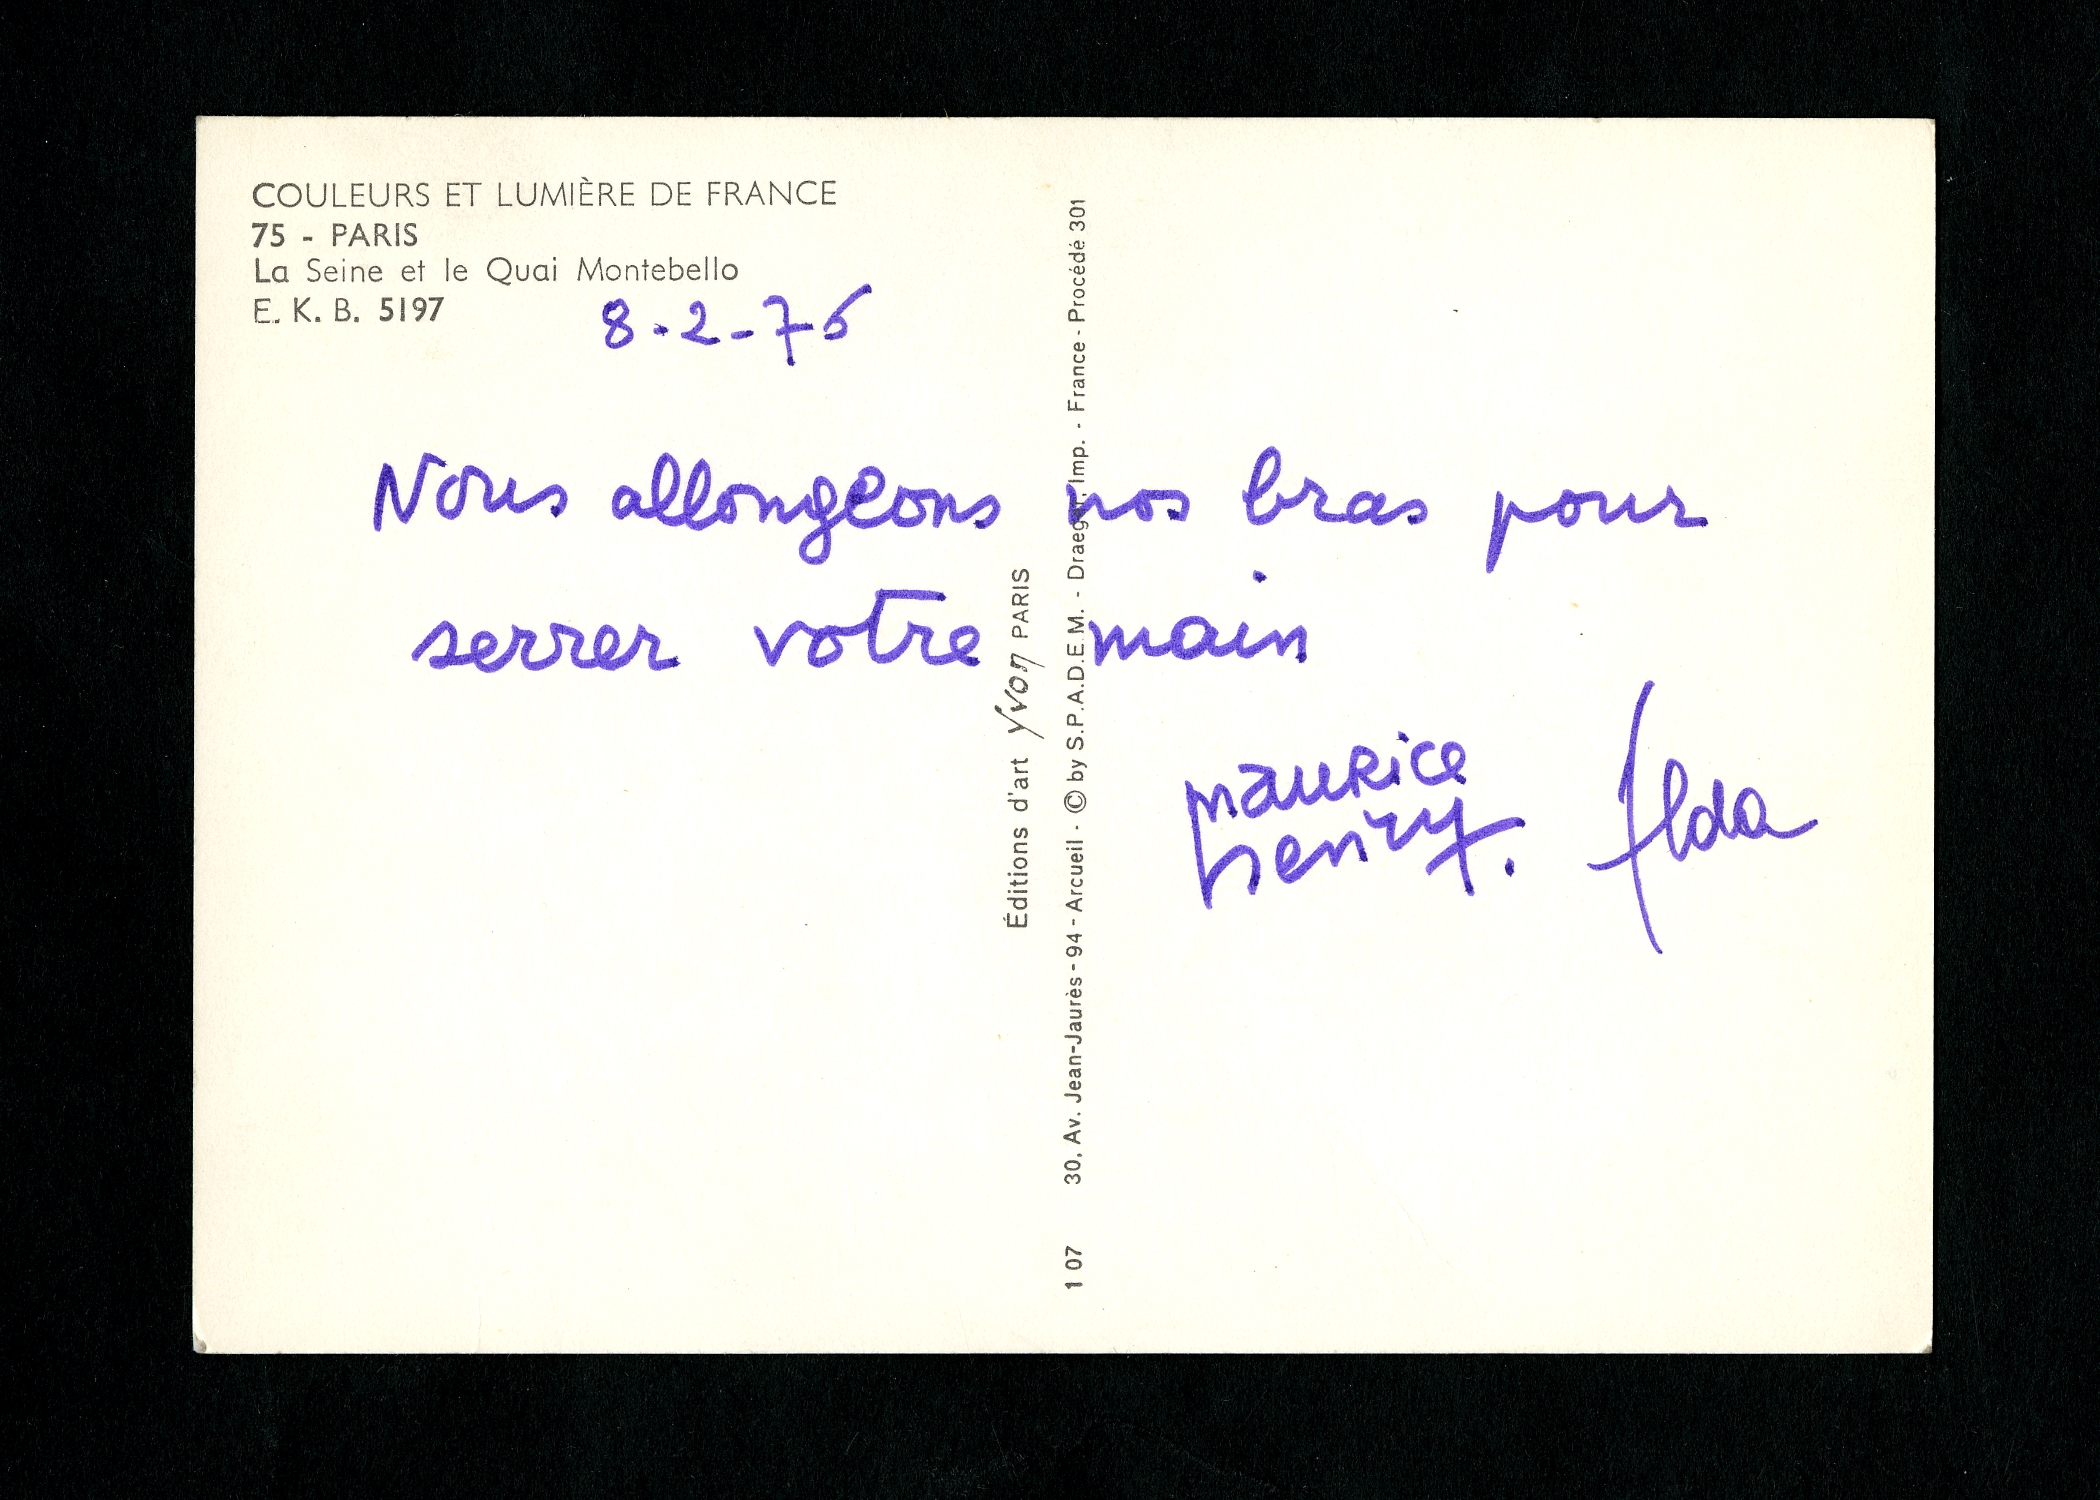 COULEURS ET LUMIÈRE DE FRANCE
75 - PARIS
La Seine et le Quai Montebello
E. K. B. 5197
8.2-75
Nous allongeons nos bras pour
serrer votre main
maurice
henry.
Alda
Éditions d'art Yvon PARIS
107 30, Av. Jean-Jaurès - 94 - Arcueil - © by S.P.A.D.E.M. - Draeger, Imp. - France - Procédé 301